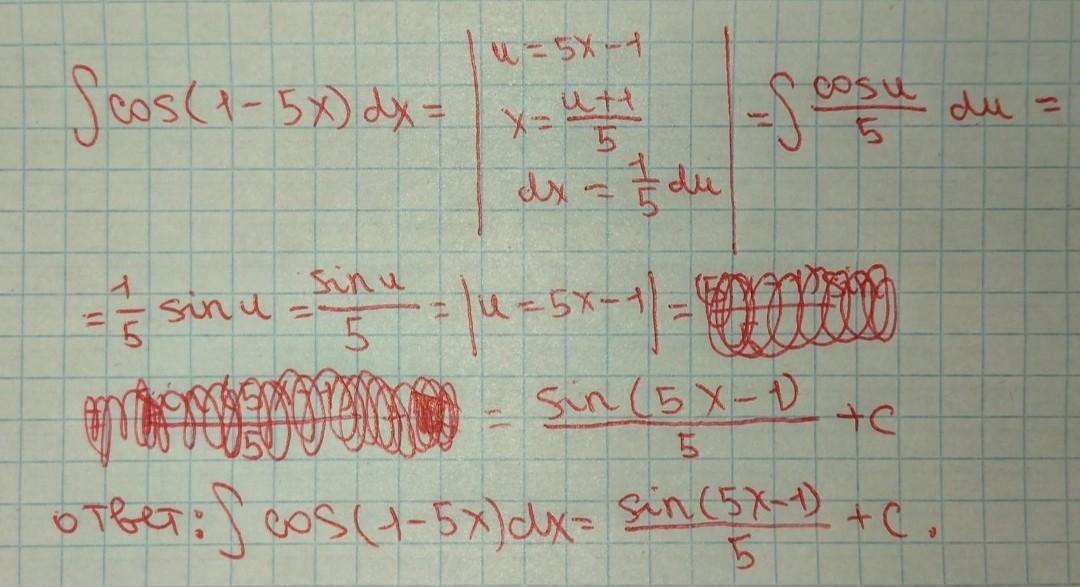 ∫cos(1-5x)dx = | u = 5x-1 x = (u+1)/5 dx = 1/5 du | = ∫ cosu/5 du =
= 1/5 sin u = sin u/5 = |u = 5x-1| =
= sin(5x-1)/5 + c
ответ: ∫ cos(1-5x)dx = sin(5x-1)/5 + c.